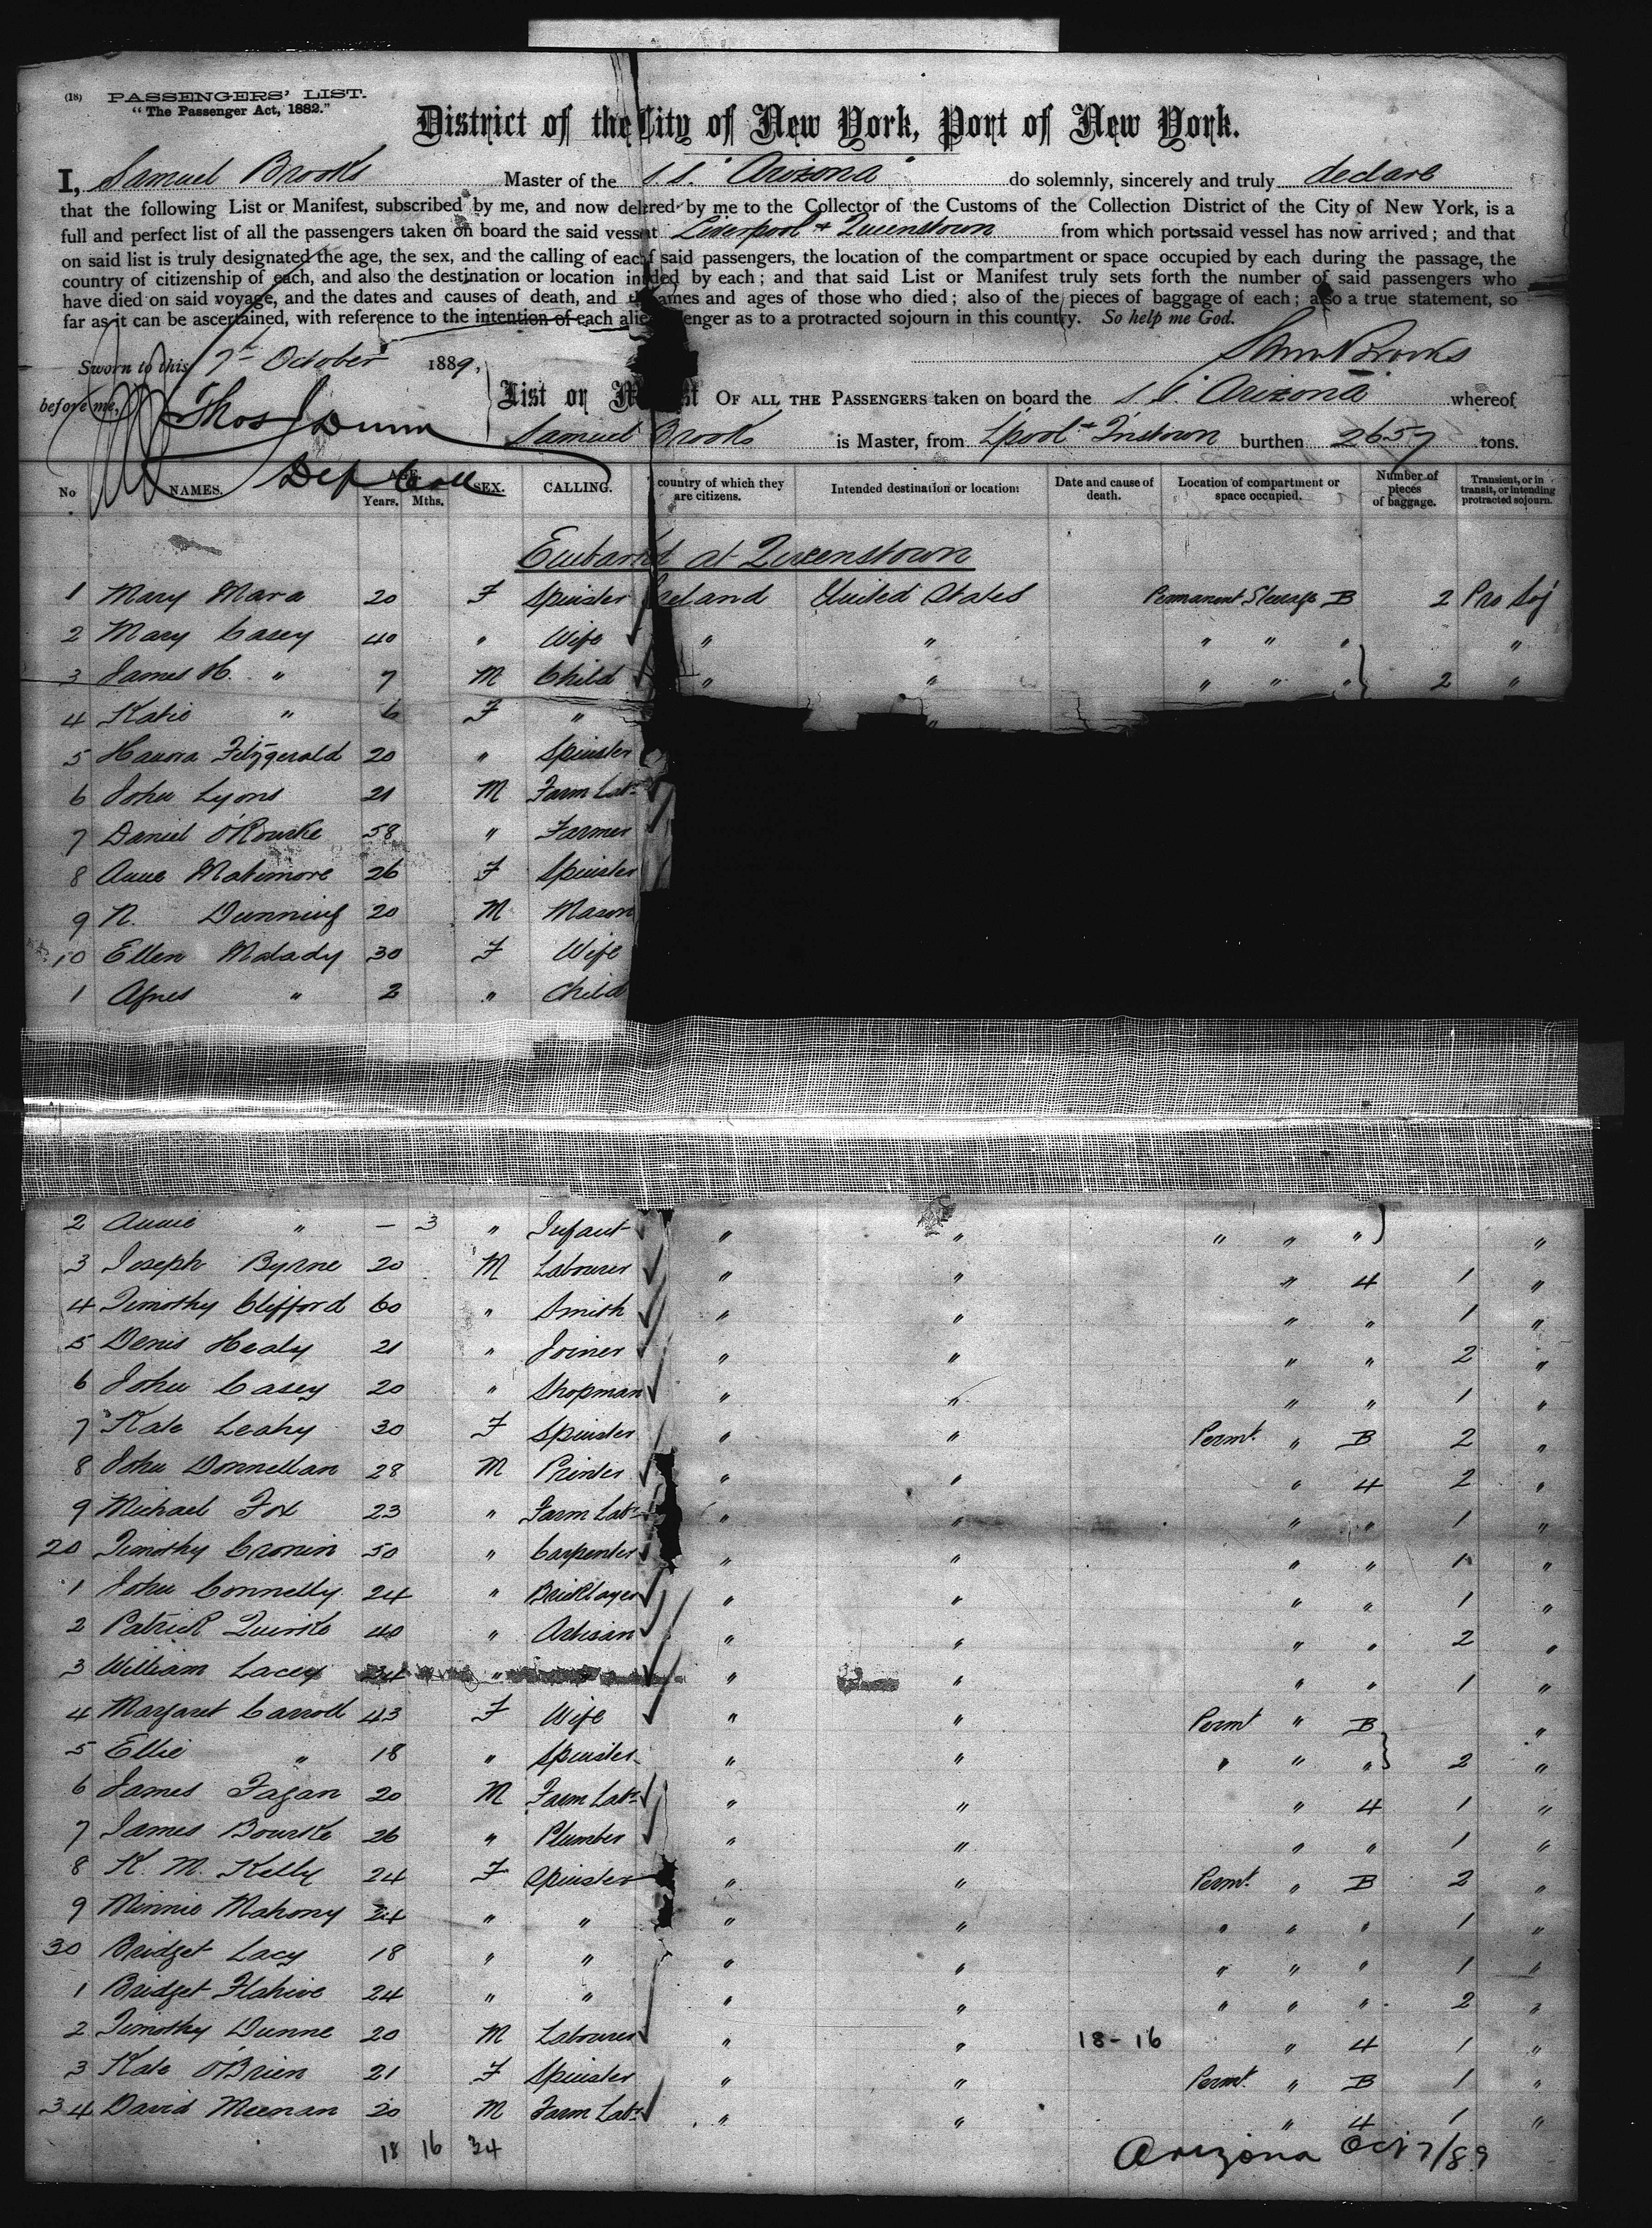 (18) PASSENGERS' LIST.
"The Passenger Act, 1882."
District of the City of New York, Port of New York.
I, Samuel Brooks Master of the S.S. "Arizona" do solemnly, sincerely and truly declare
that the following List or Manifest, subscribed by me, and now delered by me to the Collector of the Customs of the Collection District of the City of New York, is a
full and perfect list of all the passengers taken on board the said vesset Liverpool & Queenstown from which port said vessel has now arrived; and that
on said list is truly designated the age, the sex, and the calling of each f said passengers, the location of the compartment or space occupied by each during the passage, the
country of citizenship of each, and also the destination or location inded by each; and that said List or Manifest truly sets forth the number of said passengers who
have died on said voyage, and the dates and causes of death, and t ames and ages of those who died; also of the pieces of baggage of each; also a true statement, so
far as it can be ascertained, with reference to the intention of each alie enger as to a protracted sojourn in this country. So help me God.
Sworn to this 7th October 1889, Saml Brooks
before me, Thos J Dunn List or M st OF ALL THE PASSENGERS taken on board the S.S. Arizona whereof
Samuel Brooks is Master, from L'pool & Q'nstown burthen 2657 tons.
Dep Coll
No NAMES. AGE. Years. Mths. SEX. CALLING. country of which they are citizens. Intended destination or location: Date and cause of death. Location of compartment or space occupied. Number of pieces of baggage. Transient, or in transit, or intending protracted sojourn.
Embarkd at Queenstown
1 Mary Mara 20 F Spinster Ireland United States Permanent Steerage B 2 Pro Soj
2 Mary Casey 40 " Wife " " " " " "
3 James H. " 7 M Child " " " " " 2 "
4 Katie " 6 F " "
5 Hanora Fitzgerald 20 " Spinster
6 John Lyons 21 M Farm Labr
7 Daniel O'Rourke 58 " Farmer
8 Anne Matimore 26 F Spinster
9 N. Dunning 20 M Mason
10 Ellen Malady 30 F Wife
1 Agnes " 2 " Child
2 Annie " – 3 " Infant " " " " " "
3 Joseph Byrne 20 M Labourer " " " 4 1 "
4 Timothy Clifford 60 " Smith " " " " 1 "
5 Denis Healy 21 " Joiner " " " " 2 "
6 John Casey 20 " Shopman " " " " 1 "
7 Kate Leahy 30 F Spinster " " Permt. " B 2 "
8 John Donnellan 28 M Printer " " " 4 2 "
9 Michael Fox 23 " Farm Labr " " " " 1 "
20 Timothy Cronin 50 " Carpenter " " " " 1 "
1 John Connelly 24 " Bricklayer " " " " 1 "
2 Patrick Quirke 40 " Artisan " " " " 2 "
3 William Lacey 34 " " " " " 1 "
4 Margaret Carroll 43 F Wife " " Permt " B "
5 Ellie " 18 " Spinster " " " " " 2 "
6 James Fagan 20 M Farm Labr " " " 4 1 "
7 James Bourke 26 " Plumber " " " " 1 "
8 K. M. Kelly 24 F Spinster " " Permt. " B 2 "
9 Minnie Mahony 24 " " " " " " " 1 "
30 Bridget Lacy 18 " " " " " " " 1 "
1 Bridget Flahive 24 " " " " " " " 2 "
2 Timothy Dunne 20 M Labourer " " 18-16 " 4 1 "
3 Kate O'Brien 21 F Spinster " " Permt. " B 1 "
34 David Meenan 20 M Farm Labr " " " 4 1 "
18 16 34
Arizona Oct 7/89